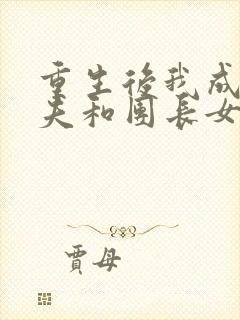 重生後我成
夫和團長女
賈母